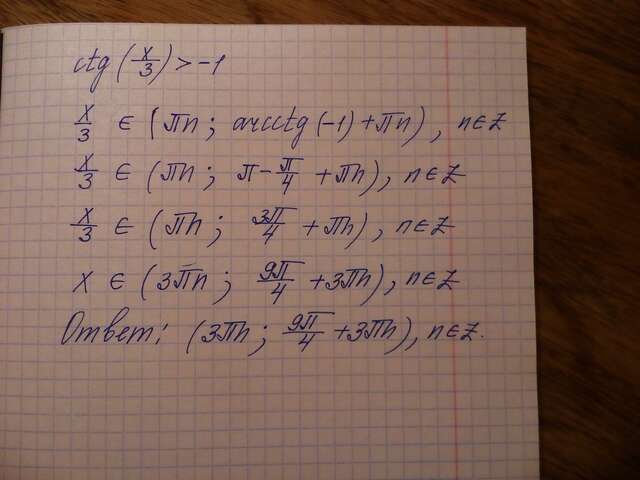 ctg(x/3) > -1
x/3 ∈ (πn; arcctg(-1) + πn), n∈Z
x/3 ∈ (πn; π - π/4 + πn), n∈Z
x/3 ∈ (πn; 3π/4 + πn), n∈Z
x ∈ (3πn; 9π/4 + 3πn), n∈Z
Ответ: (3πn; 9π/4 + 3πn), n∈Z.